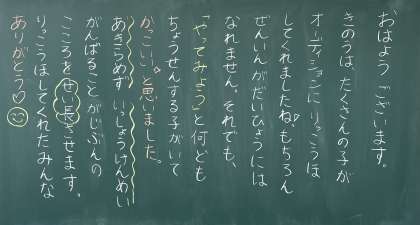 おはよう ございます。
きのうは、たくさんの子が
オーディションにりっこうほ
してくれましたね。もちろん
ぜんいんがだいひょうには
なれません。それでも、
「やってみよう」と何ども
ちょうせんする子がいて
かっこいいと思いました。
あきらめず いっしょうけんめい
がんばることがじぶんの
こころをせい長させます。
りっこうほしてくれたみんな
ありがとう♡